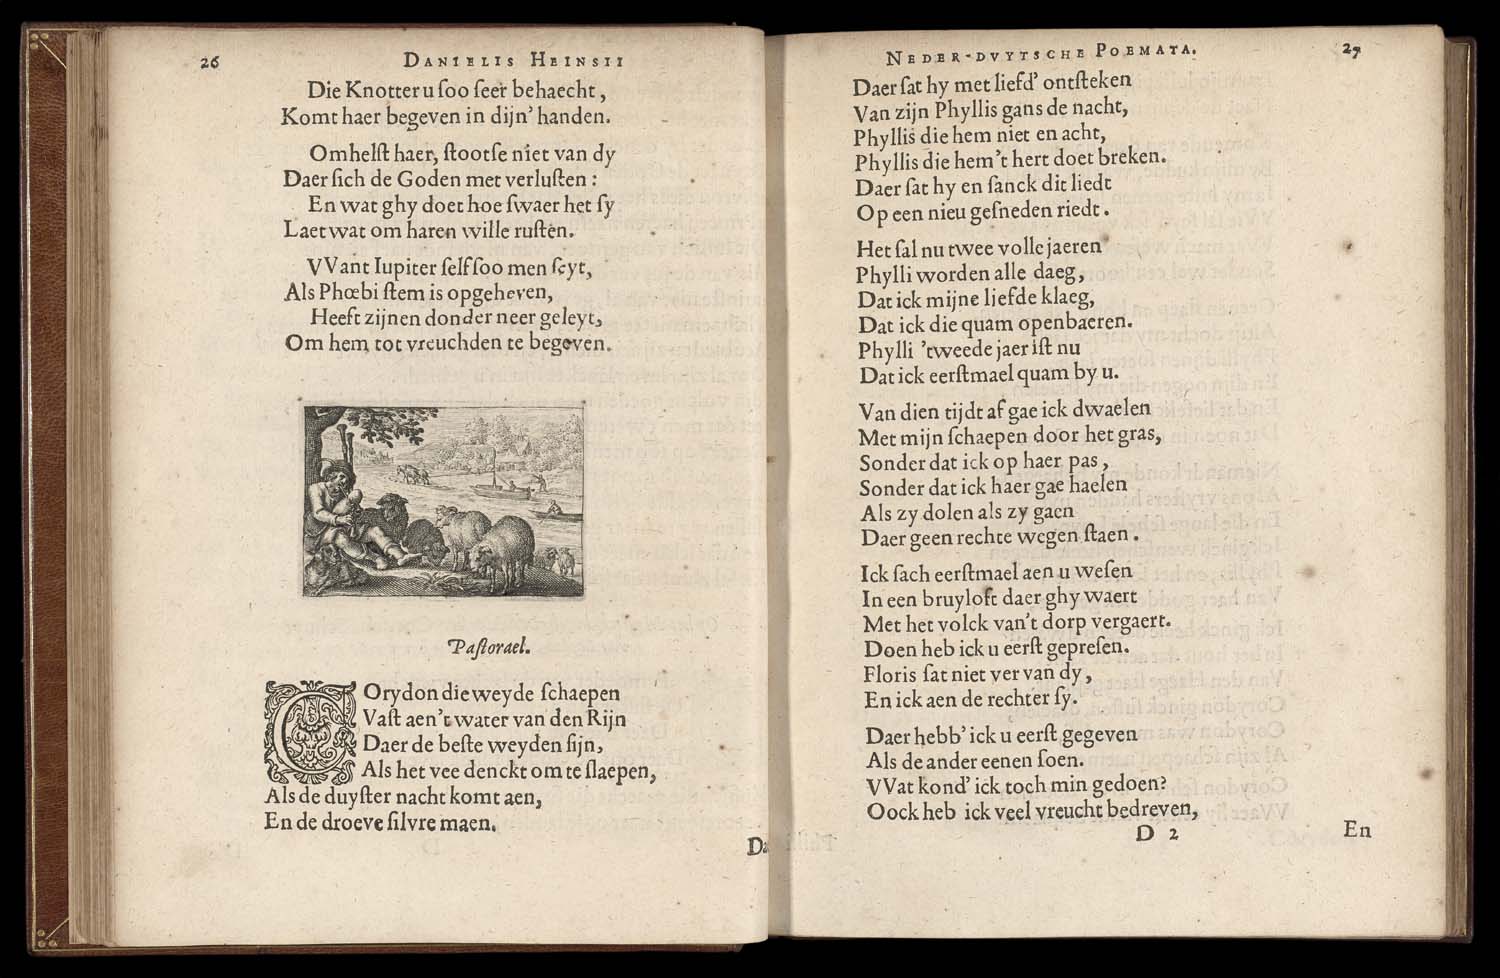 26
DANIELIS HEINSII
Die Knotter u ſoo ſeer behaecht,
Komt haer begeven in dijn' handen.
Omhelſt haer, ſtootſe niet van dy
Daer ſich de Goden met verluſten:
En wat ghy doet hoe ſwaer het ſy
Laet wat om haren wille ruſten.
VVant Iupiter ſelf ſoo men ſeyt,
Als Phœbi ſtem is opgeheven,
Heeft zijnen donder neer geleyt,
Om hem tot vreuchden te begeven.
Paſtorael.
Corydon die weyde ſchaepen
Vaſt aen't water van den Rijn
Daer de beſte weyden ſijn,
Als het vee denckt om te ſlaepen,
Als de duyſter nacht komt aen,
En de droeve ſilvre maen.
NEDER-DVYTSCHE POEMATA.
27
Daer ſat hy met liefd' ontſteken
Van zijn Phyllis gans de nacht,
Phyllis die hem niet en acht,
Phyllis die hem't hert doet breken.
Daer ſat hy en ſanck dit liedt
Op een nieu geſneden riedt.
Het ſal nu twee volle jaeren
Phylli worden alle daeg,
Dat ick mijne liefde klaeg,
Dat ick die quam openbaeren.
Phylli 'tweede jaer iſt nu
Dat ick eerſtmael quam by u.
Van dien tijdt af gae ick dwaelen
Met mijn ſchaepen door het gras,
Sonder dat ick op haer pas,
Sonder dat ick haer gae haelen
Als zy dolen als zy gaen
Daer geen rechte wegen ſtaen.
Ick ſach eerſtmael aen u weſen
In een bruyloft daer ghy waert
Met het volck van't dorp vergaert.
Doen heb ick u eerſt gepreſen.
Floris ſat niet ver van dy,
En ick aen de rechter ſy.
Daer hebb' ick u eerſt gegeven
Als de ander eenen ſoen.
VVat kond' ick toch min gedoen?
Oock heb ick veel vreucht bedreven,
D 2
En